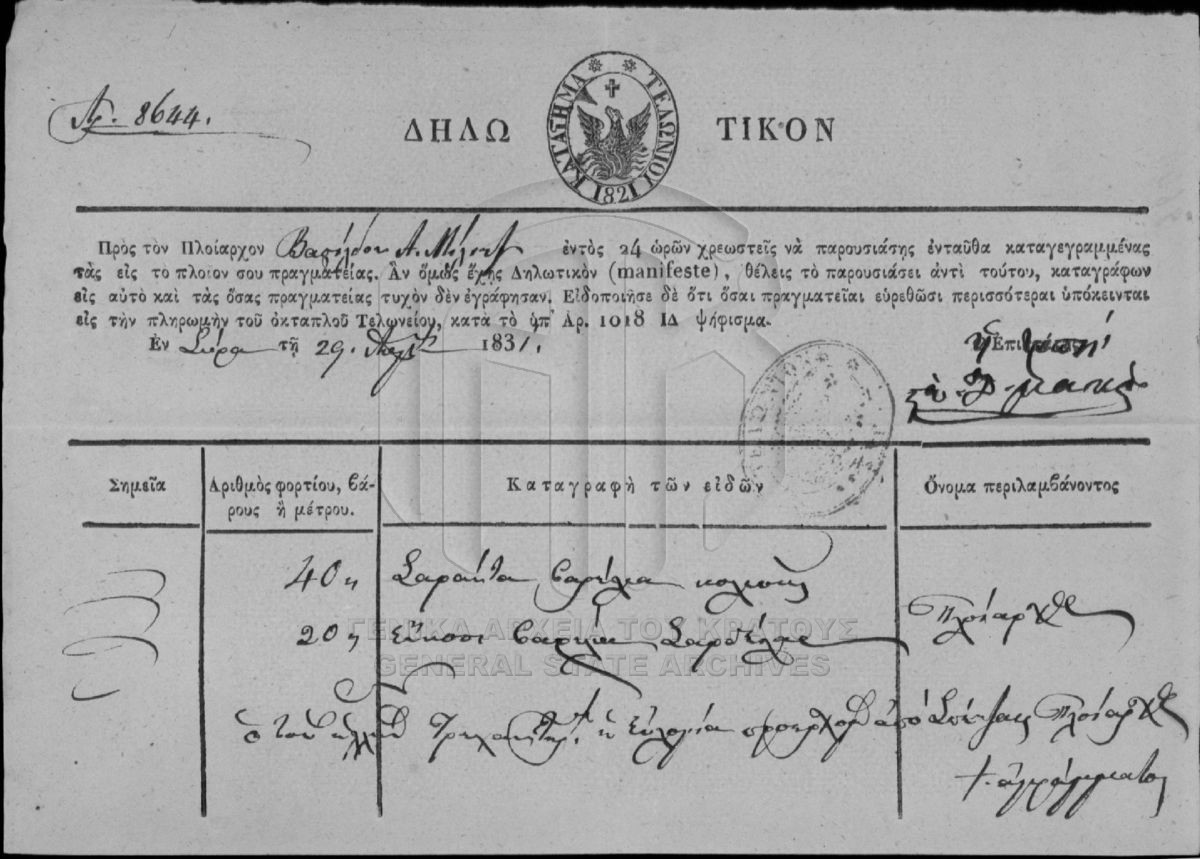 Ἀρ. 8644.
ΔΗΛΩ ΤΙΚΟΝ
ΚΑΤΑΣΤΗΜΑ ΤΕΛΩΝΙΟΥ 1821
Πρὸς τὸν Πλοίαρχον ἐντὸς 24 ὡρῶν χρεωστεῖς νὰ παρουσιάσῃς ἐνταῦθα καταγεγραμμένας
τὰς εἰς τὸ πλοῖον σου πραγματείας. Ἂν ὅμως ἔχῃς Δηλωτικὸν (manifeste), θέλεις τὸ παρουσιάσει ἀντὶ τούτου, καταγράφων
εἰς αὐτὸ καὶ τὰς ὅσας πραγματείας τυχὸν δὲν ἐγράφησαν. Εἰδοποιῆσε δὲ ὅτι ὅσαι πραγματεῖαι εὑρεθῶσι περισσότεραι ὑπόκεινται
εἰς τὴν πληρωμὴν τοῦ ὀκταπλοῦ Τελωνείου, κατὰ τὸ ὑπ' Ἀρ. 1018 ΙΔ ψήφισμα.
Ἐν Σύρᾳ τῇ 29 1831.
Σημεῖα
Ἀριθμὸς φορτίου, βά-
ρους ἢ μέτρου.
Καταγραφὴ τῶν εἰδῶν
Ὄνομα περιλαμβάνοντος
40 Σαράντα βαρέλια
20 Εἴκοσι βαρέλια Σαρδέλαις
Πλοίαρχος
ΓΕΝΙΚΑ ΑΡΧΕΙΑ ΤΟΥ ΚΡΑΤΟΥΣ
GENERAL STATE ARCHIVES
ἀπὸ Σπέτζαις Πλοίαρχος
ἀγράμματος